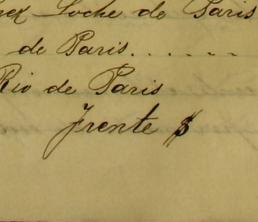 Loche de Paris
de Paris......
Rio de Paris
Frente $